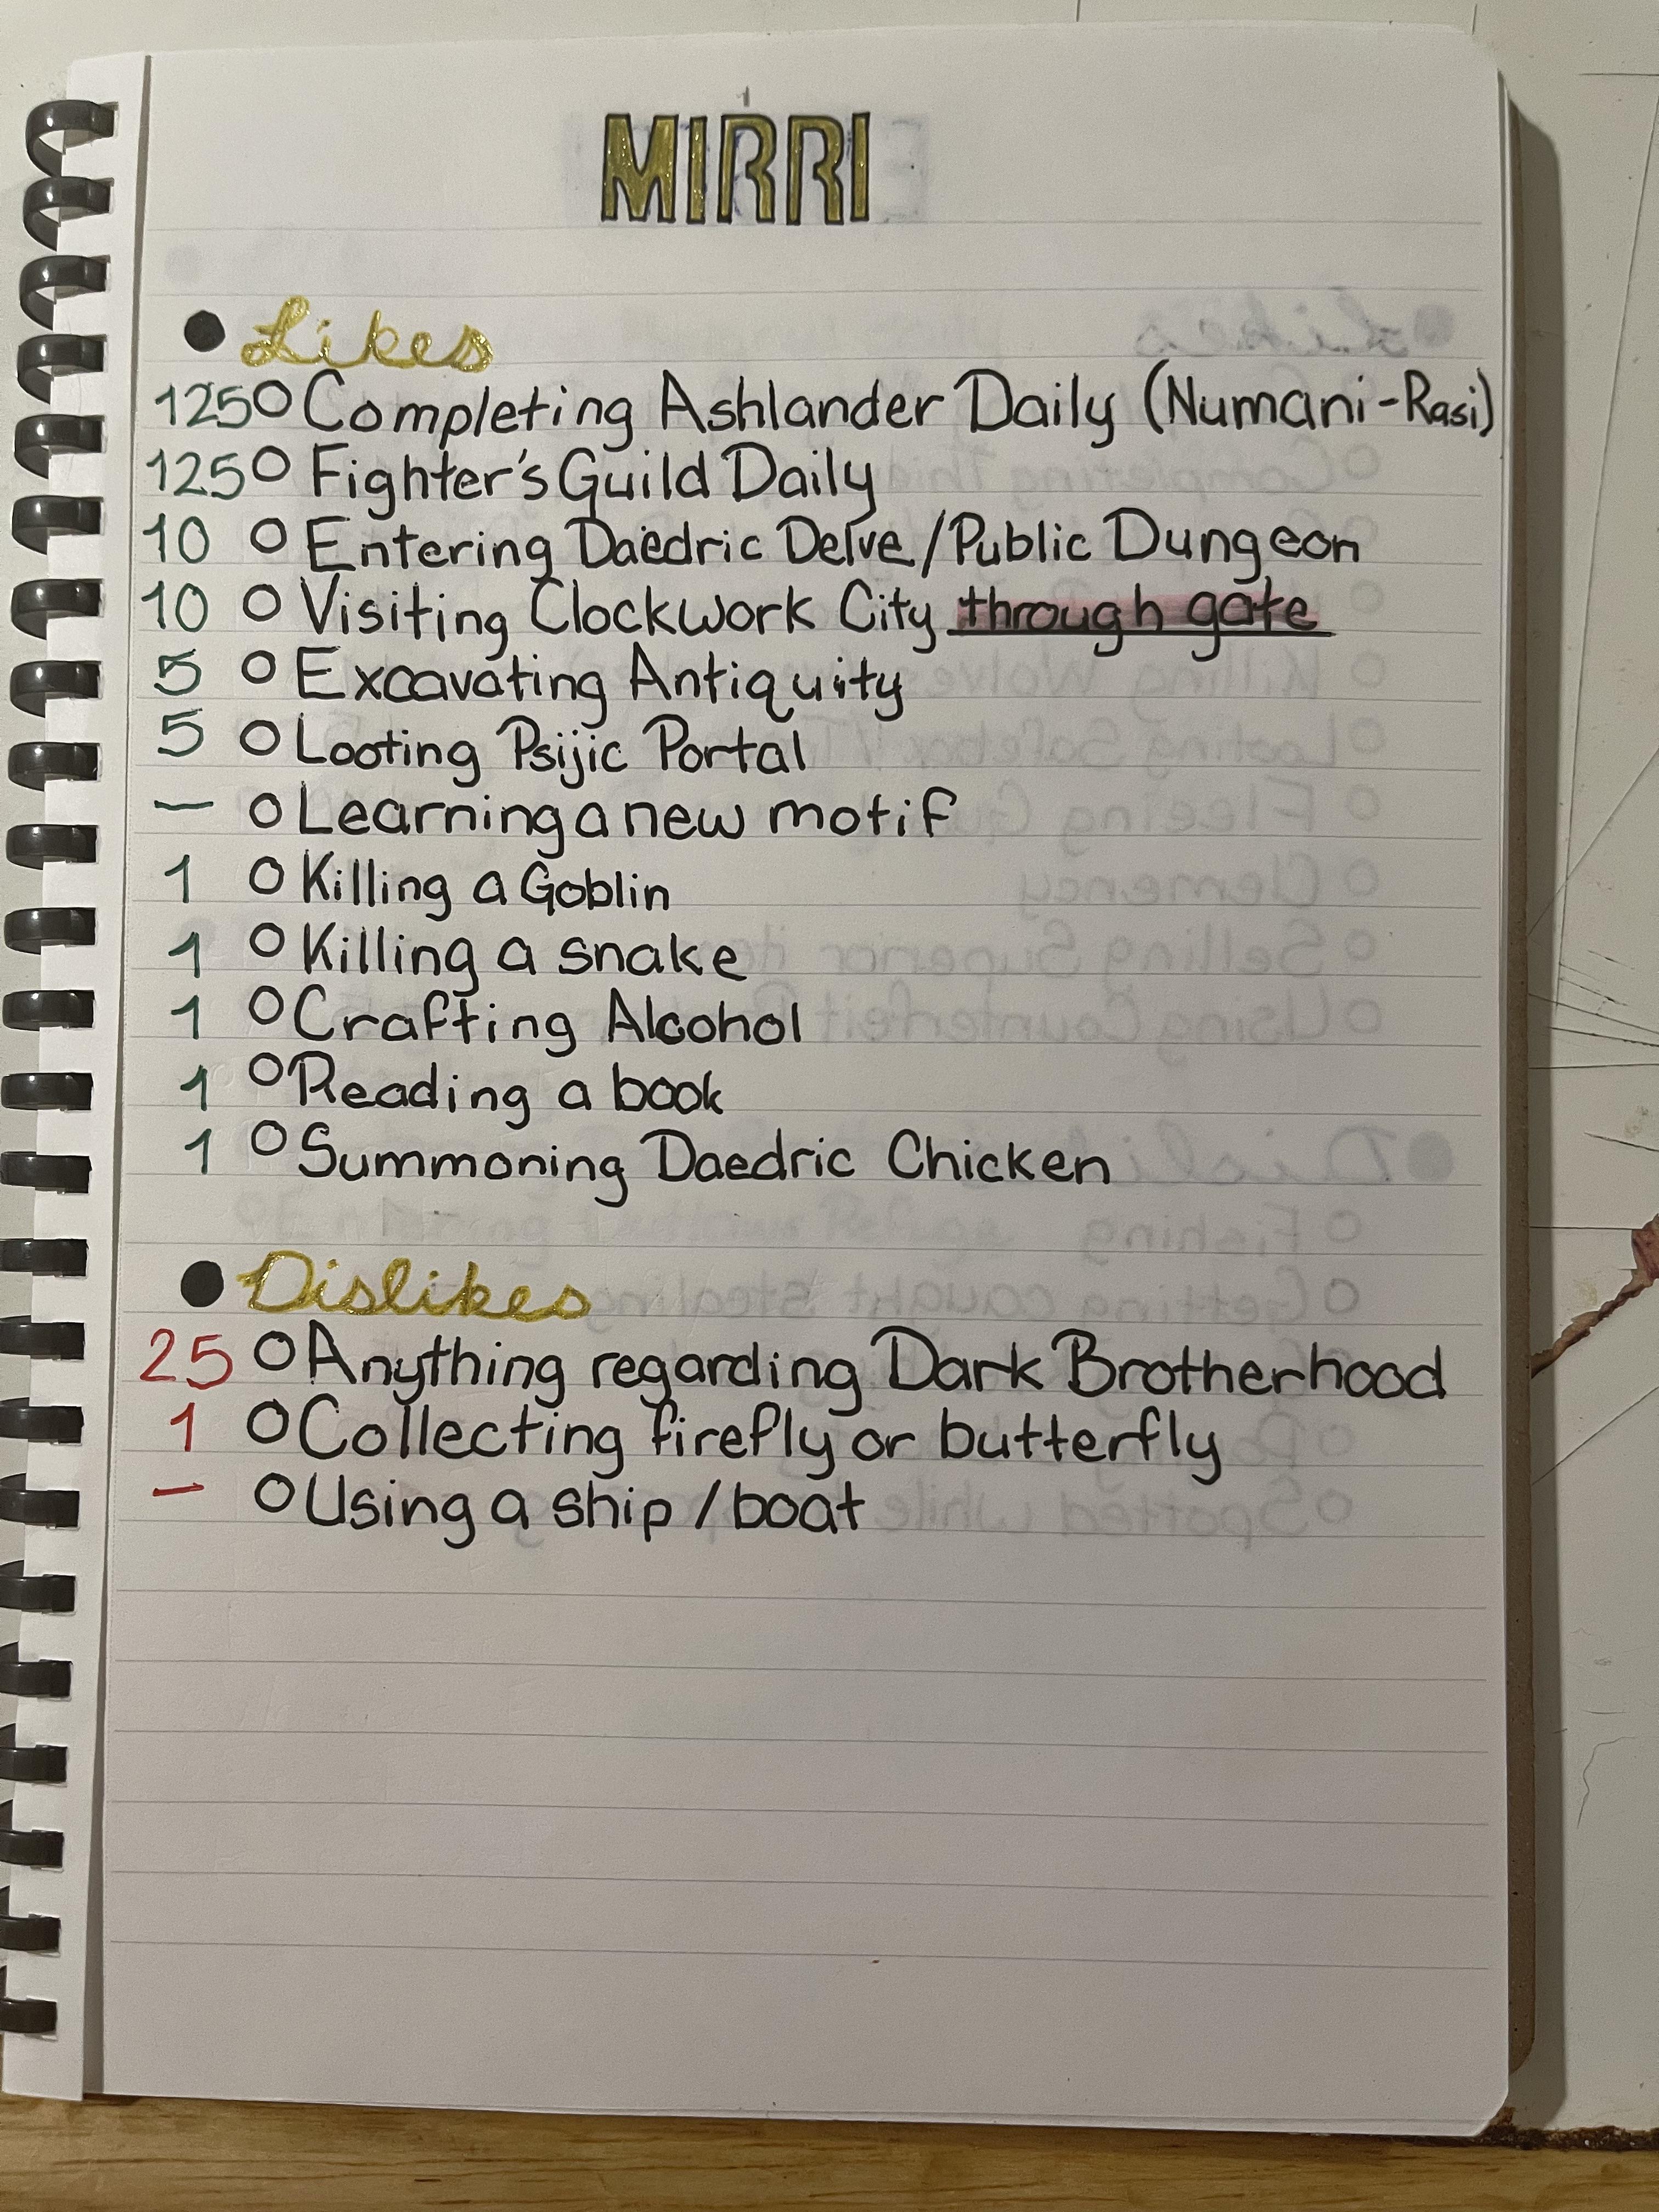 MIRRI
● Likes
125 ○ Completing Ashlander Daily (Numani-Rasi)
125 ○ Fighter's Guild Daily
10 ○ Entering Daedric Delve/Public Dungeon
10 ○ Visiting Clockwork City through gate
5 ○ Excavating Antiquity
5 ○ Looting Psijic Portal
— ○ Learning a new motif
1 ○ Killing a Goblin
1 ○ Killing a snake
1 ○ Crafting Alcohol
1 ○ Reading a book
1 ○ Summoning Daedric Chicken
● Dislikes
25 ○ Anything regarding Dark Brotherhood
1 ○ Collecting firefly or butterfly
— ○ Using a ship/boat